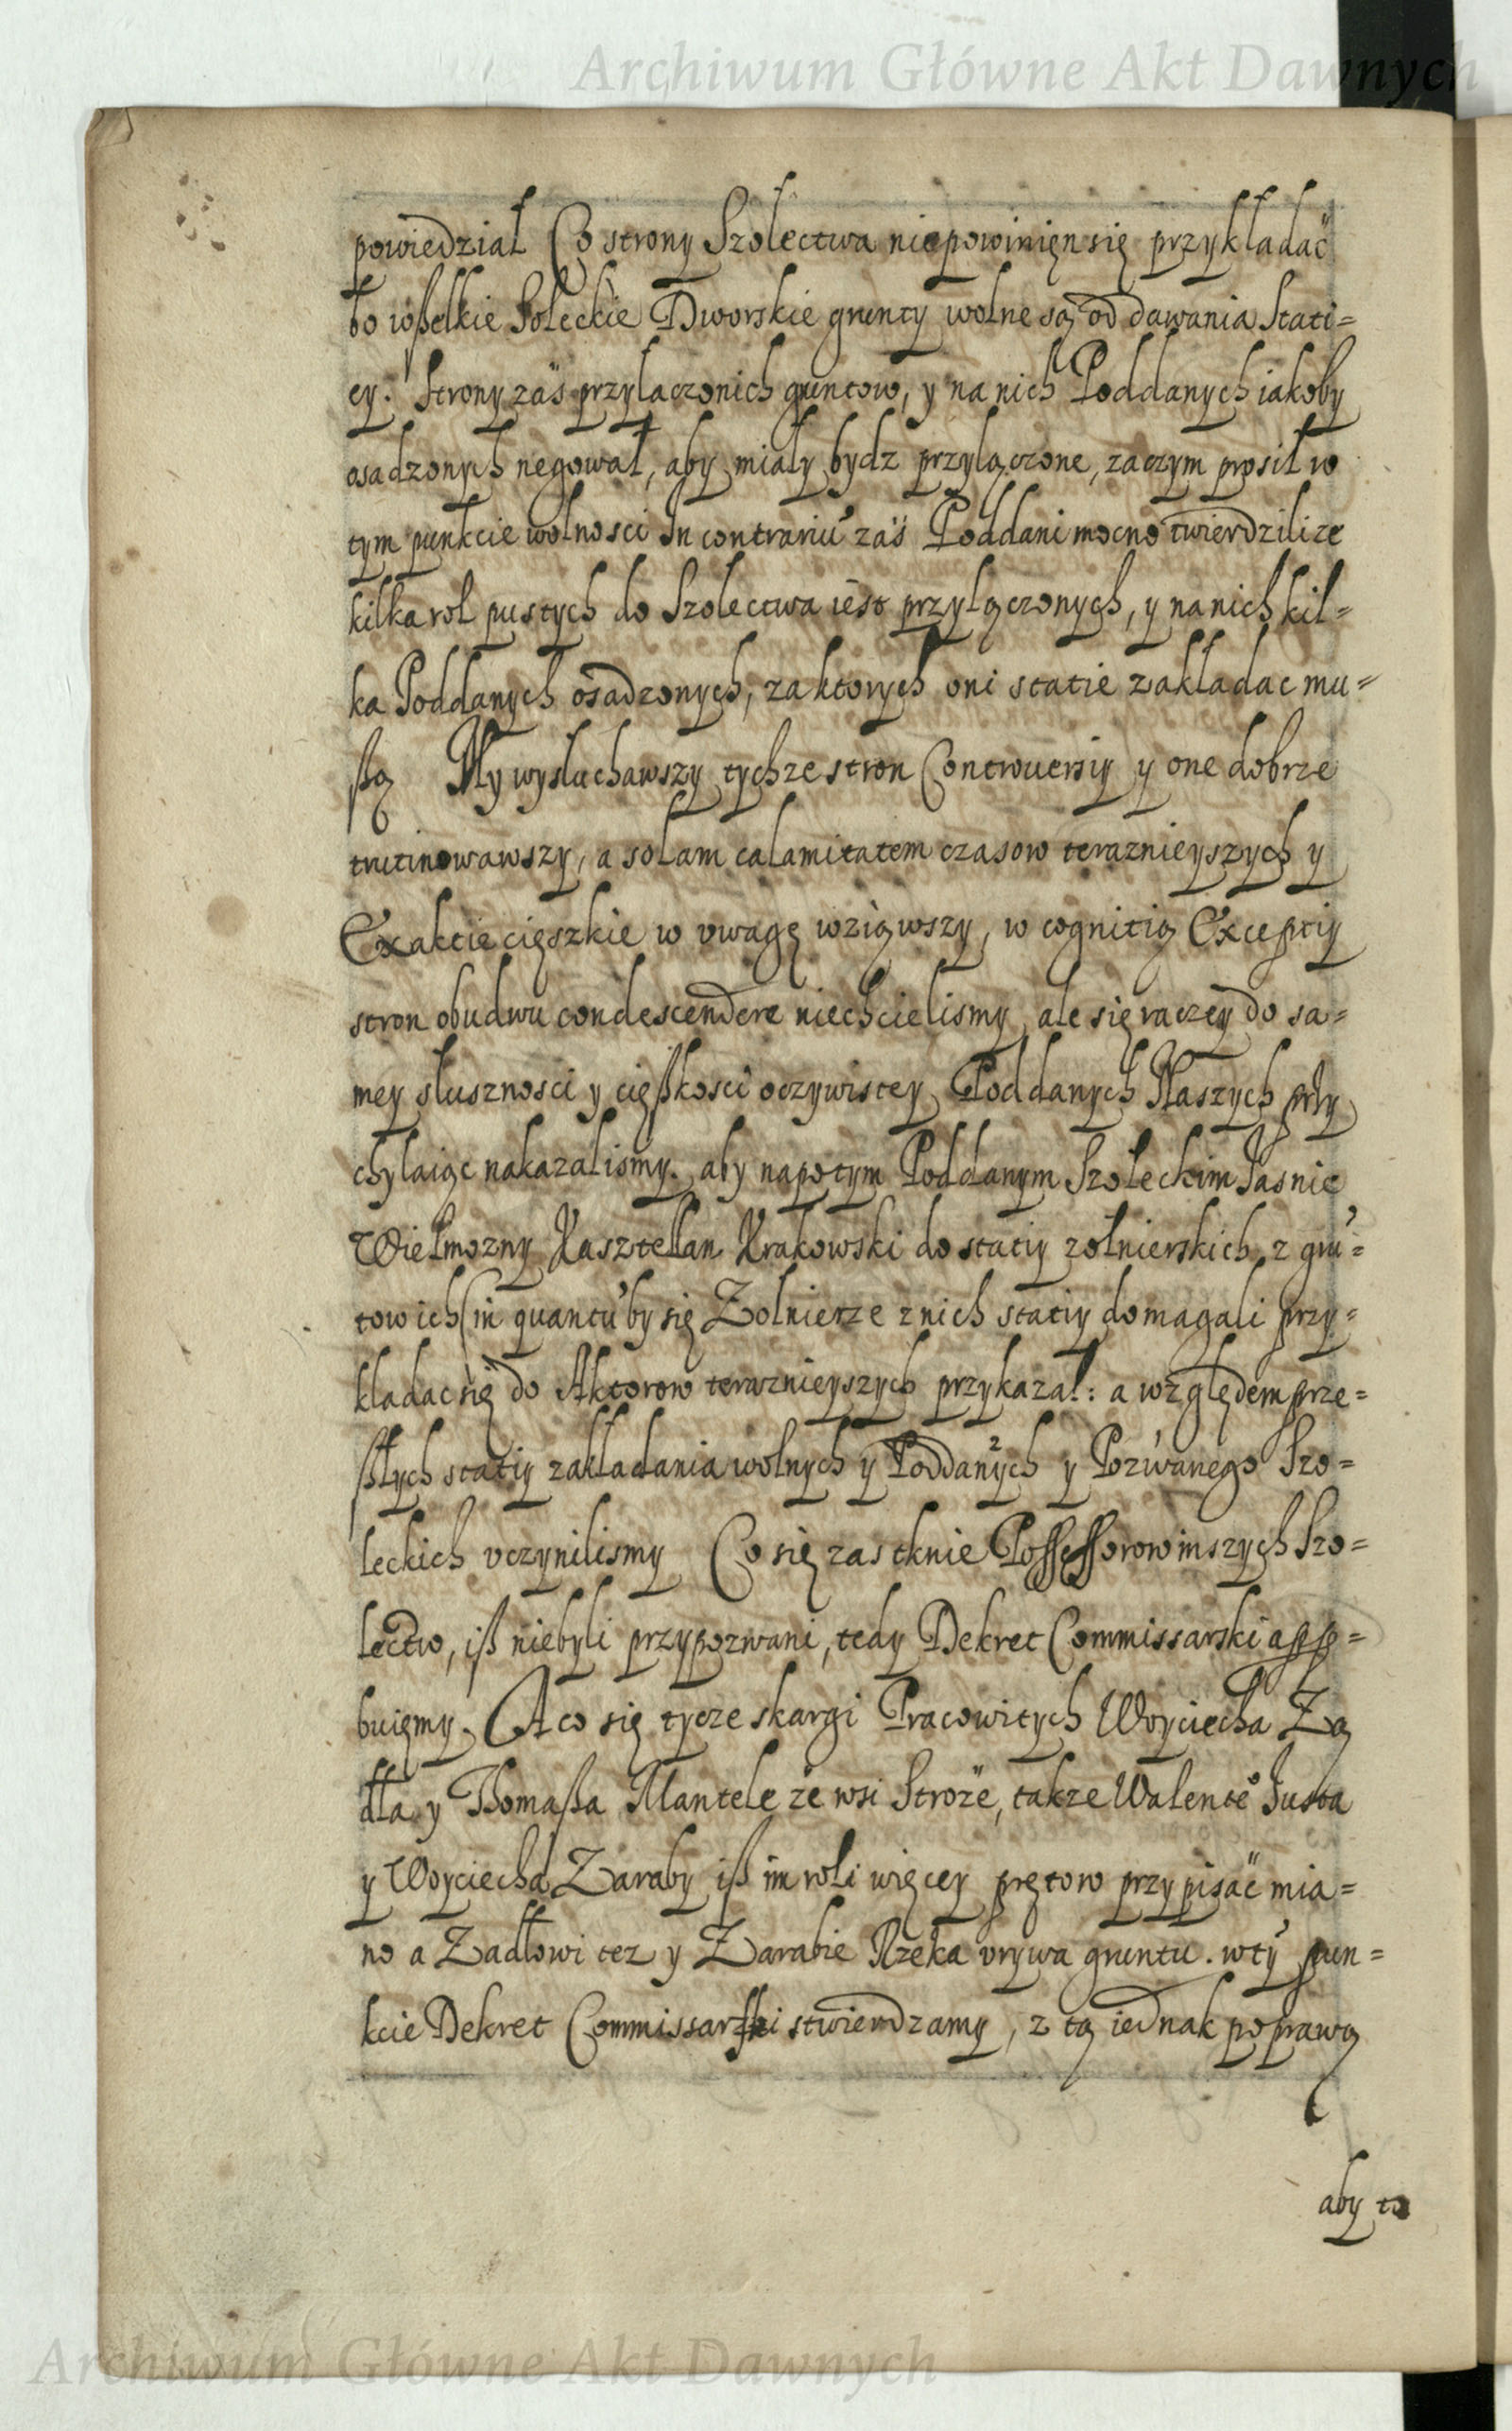 Archiwum Główne Akt Dawnych
powiedział Co strony Szolectwa niepowinięn się przykładać
bo wßelkie Soleckie Dworskie grunty wolne są od dawania Stati=
ey. Strony zaś przylaczonich gruntow, y na nich Poddanych iakoby
osadzonych negował, aby miały bydz przyłączone, zaczym prosił w
tym punkcie wolnosci In contrariu̅ zaś Poddani mocno twierdzili ze
kilka rol pustych do Szolectwa iest przyłączonych, y na nich kil=
ka Poddanych osadzonych, za ktorych oni statie zakładac mu=
ßą My wysłuchawszy tychze stron Controuersiy y one dobrze
trutinowawszy, a solam calamitatem czasow teraznieyszych y
Exaktie cięszkie w vwagę wziąwszy, w cognitią Exceptiy
stron obudwu condescendere niechcielismy, ale się raczey do sa=
mey słusznosci y cięßkosci oczywistey Poddanych Naszych przy
chylaiąc nakazalismy. aby napotym Poddanym Szoleckim Jasnie
Wielmozny Kasztellan Krakowski do statiy zołnierskich, z gru̅=
tow ich (in quantu̅ by się Zolnierze z nich statiy domagali przy=
kladac się do Aktorow teraznieyszych przykazał: a względem prze=
ßłych statiy zakładania wolnych y Poddanych y Pozwanego Szo=
leckich vczynilismy Co się zas tknie Possessorow inszych Szo=
lectw, iß niebyli przypozwani, tedy Dekret Commissarski appro=
buięmy. A co się tycze skargi Pracowitych Woyciecha Zą
dła y Thomaßa Mantele ze wsi Stroże, takze Walente° Justa
y Woyciecha Zaraby iß im roli więcey prętow przypisać mia=
no a Ządłowi tez y Zarabie Rzeka vrywa gruntu. w ty̅ pun=
kcie Dekret Commissarski stwierdzamy, z tą iednak poprawą
aby to
Archiwum Główne Akt Dawnych